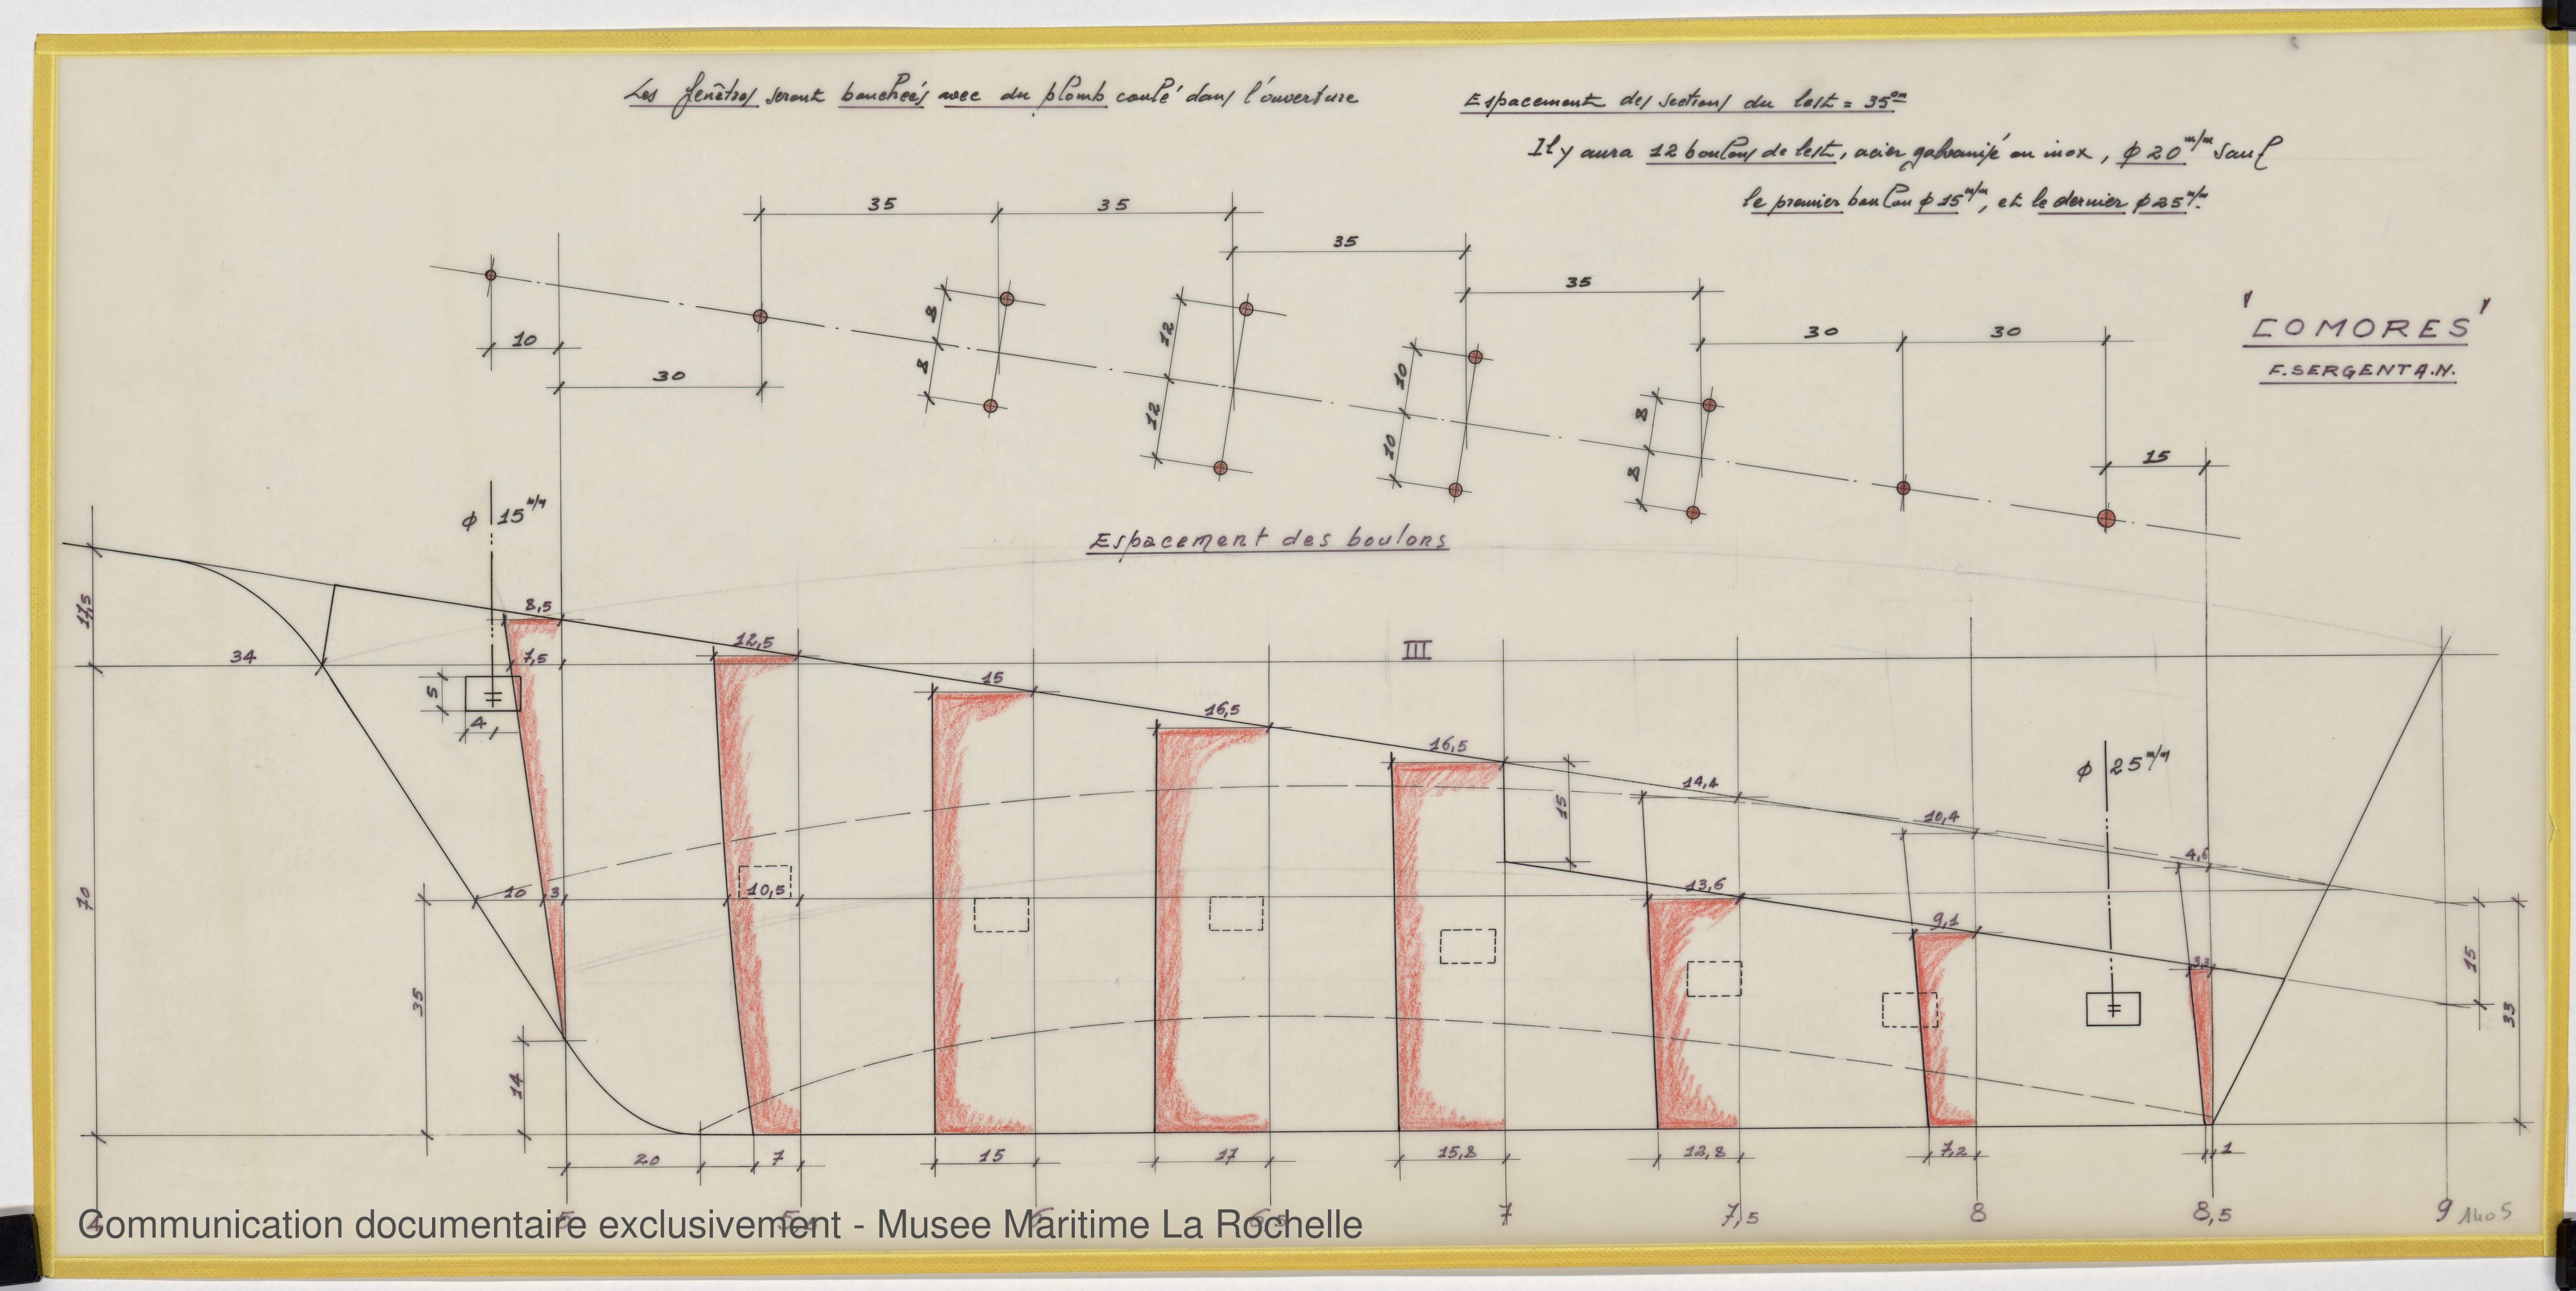 Les fenêtres seront bouchées avec du plomb coulé dans l'ouverture
Espacement des sections du lest = 35 cm
Il y aura 12 boulons de lest, acier galvanisé ou inox, ϕ 20 m/m sauf
le premier boulon ϕ 15 m/m, et le dernier ϕ 25 m/m.
35 35
35
35
30 30
10
30
8 8
12 12
10 10
8 8
15
'COMORES'
F. SERGENT A.N.
Espacement des boulons
ϕ 15 m/m
17,5
34
8,5
7,5
5
4
12,5
15
16,5
III
16,5
15
14,4
10,4
4,6
ϕ 25 m/m
70
10 3
10,5
13,6
9,1
3,3
15
33
35
14
20 7 15 17 15,8 12,8 7,2 1
7 7,5 8 8,5 9 1405
Communication documentaire exclusivement - Musee Maritime La Rochelle